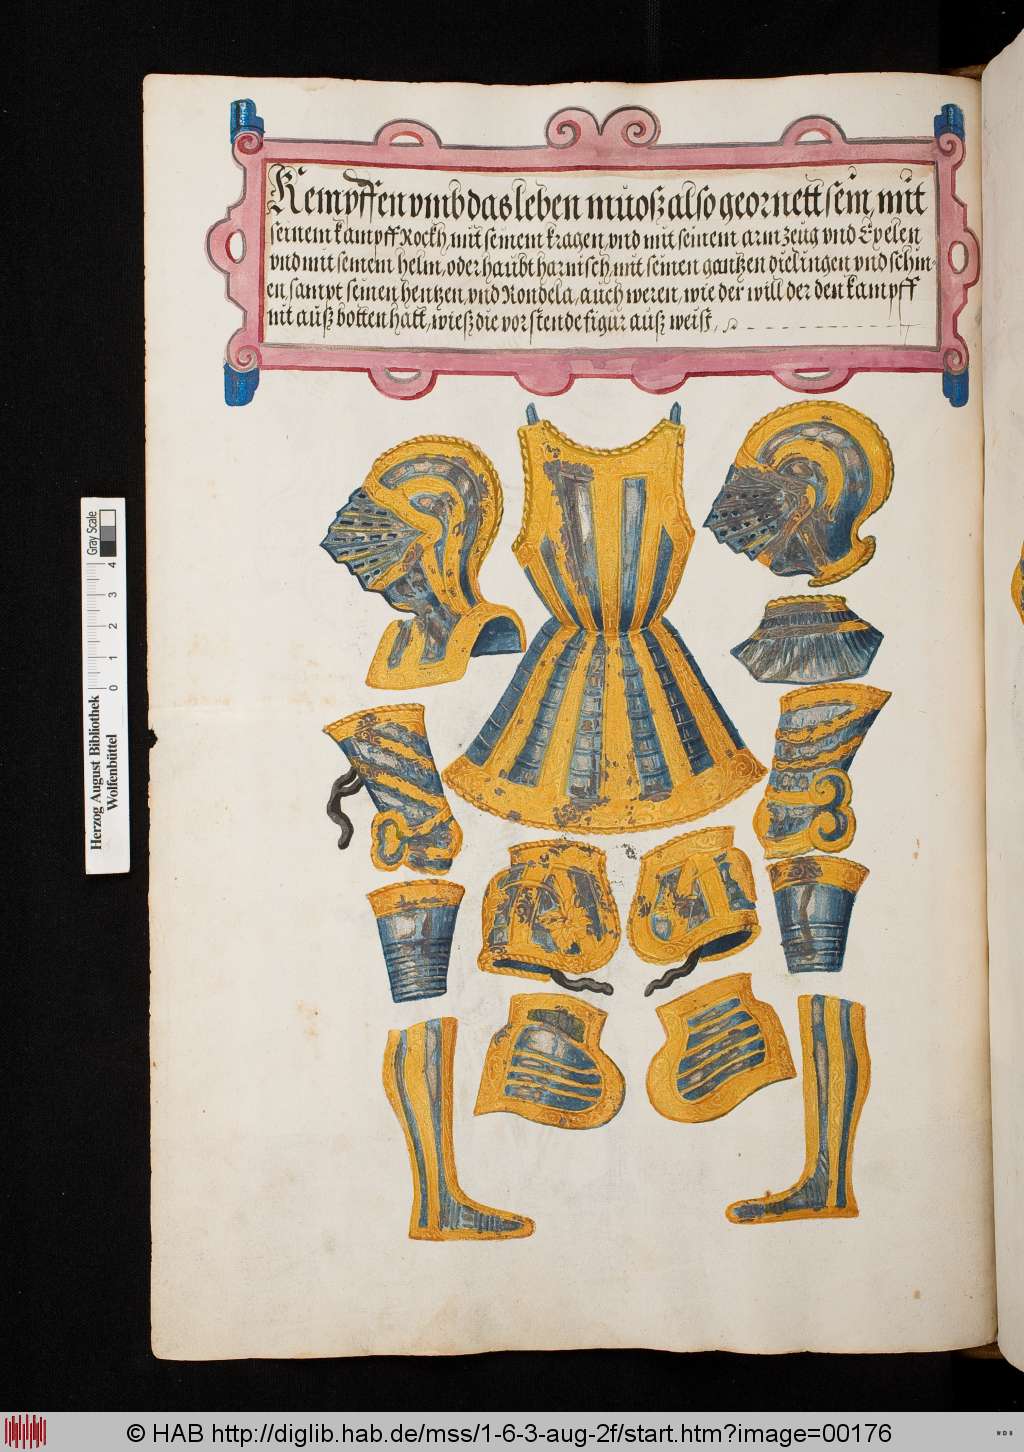 Kempffen vmb das leben muosz also geornett sein, mit
seinem kampff Rockh, mit seinem kragen, vnd mit seinem armzeug vnd Exelen
vnd mit seinem helm, oder haubt harnisch, mit seinen gantzen dielingen vnd schin-
en, sampt seinen hentzen, vnd Rondela, auch weren, wie der will der den kampff
nit ausz botten hatt, wiesz die vorstende figur ausz weist,
Herzog August Bibliothek
Wolfenbüttel
0 1 2 3 4
Gray Scale
© HAB http://diglib.hab.de/mss/1-6-3-aug-2f/start.htm?image=00176